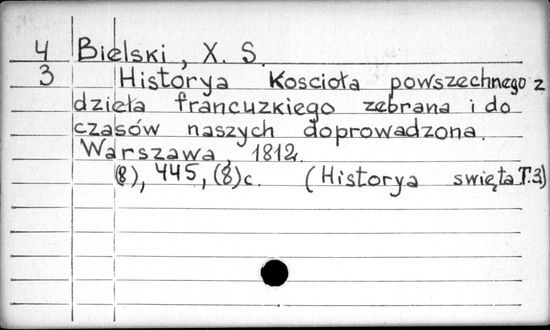 4 Bielski, X. S.
3 Historya Koscioła powszechnego z
dzieła francuzkiego zebrana i do
czasów naszych doprowadzona.
Warszawa, 1812.
(8), 445, (8)c. (Historya święta T.3)